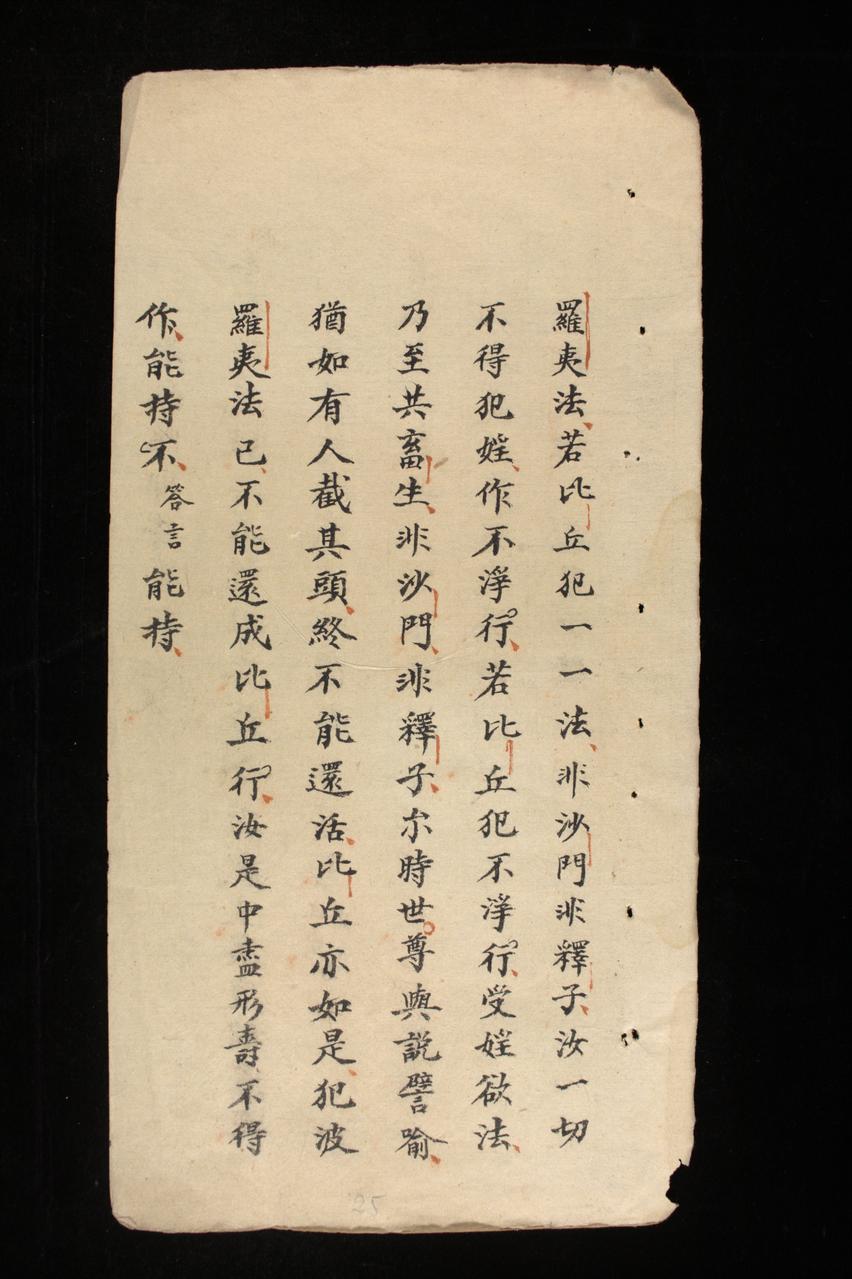 羅夷法若比丘犯一一法非沙門非釋子汝一切
不得犯婬作不淨行若比丘犯不淨行受婬欲法
乃至共畜生非沙門非釋子尒時世尊與說譬喻
猶如有人截其頭終不能還活比丘亦如是犯波
羅夷法已不能還成比丘行汝是中盡形壽不得
作能持不答言能持
25